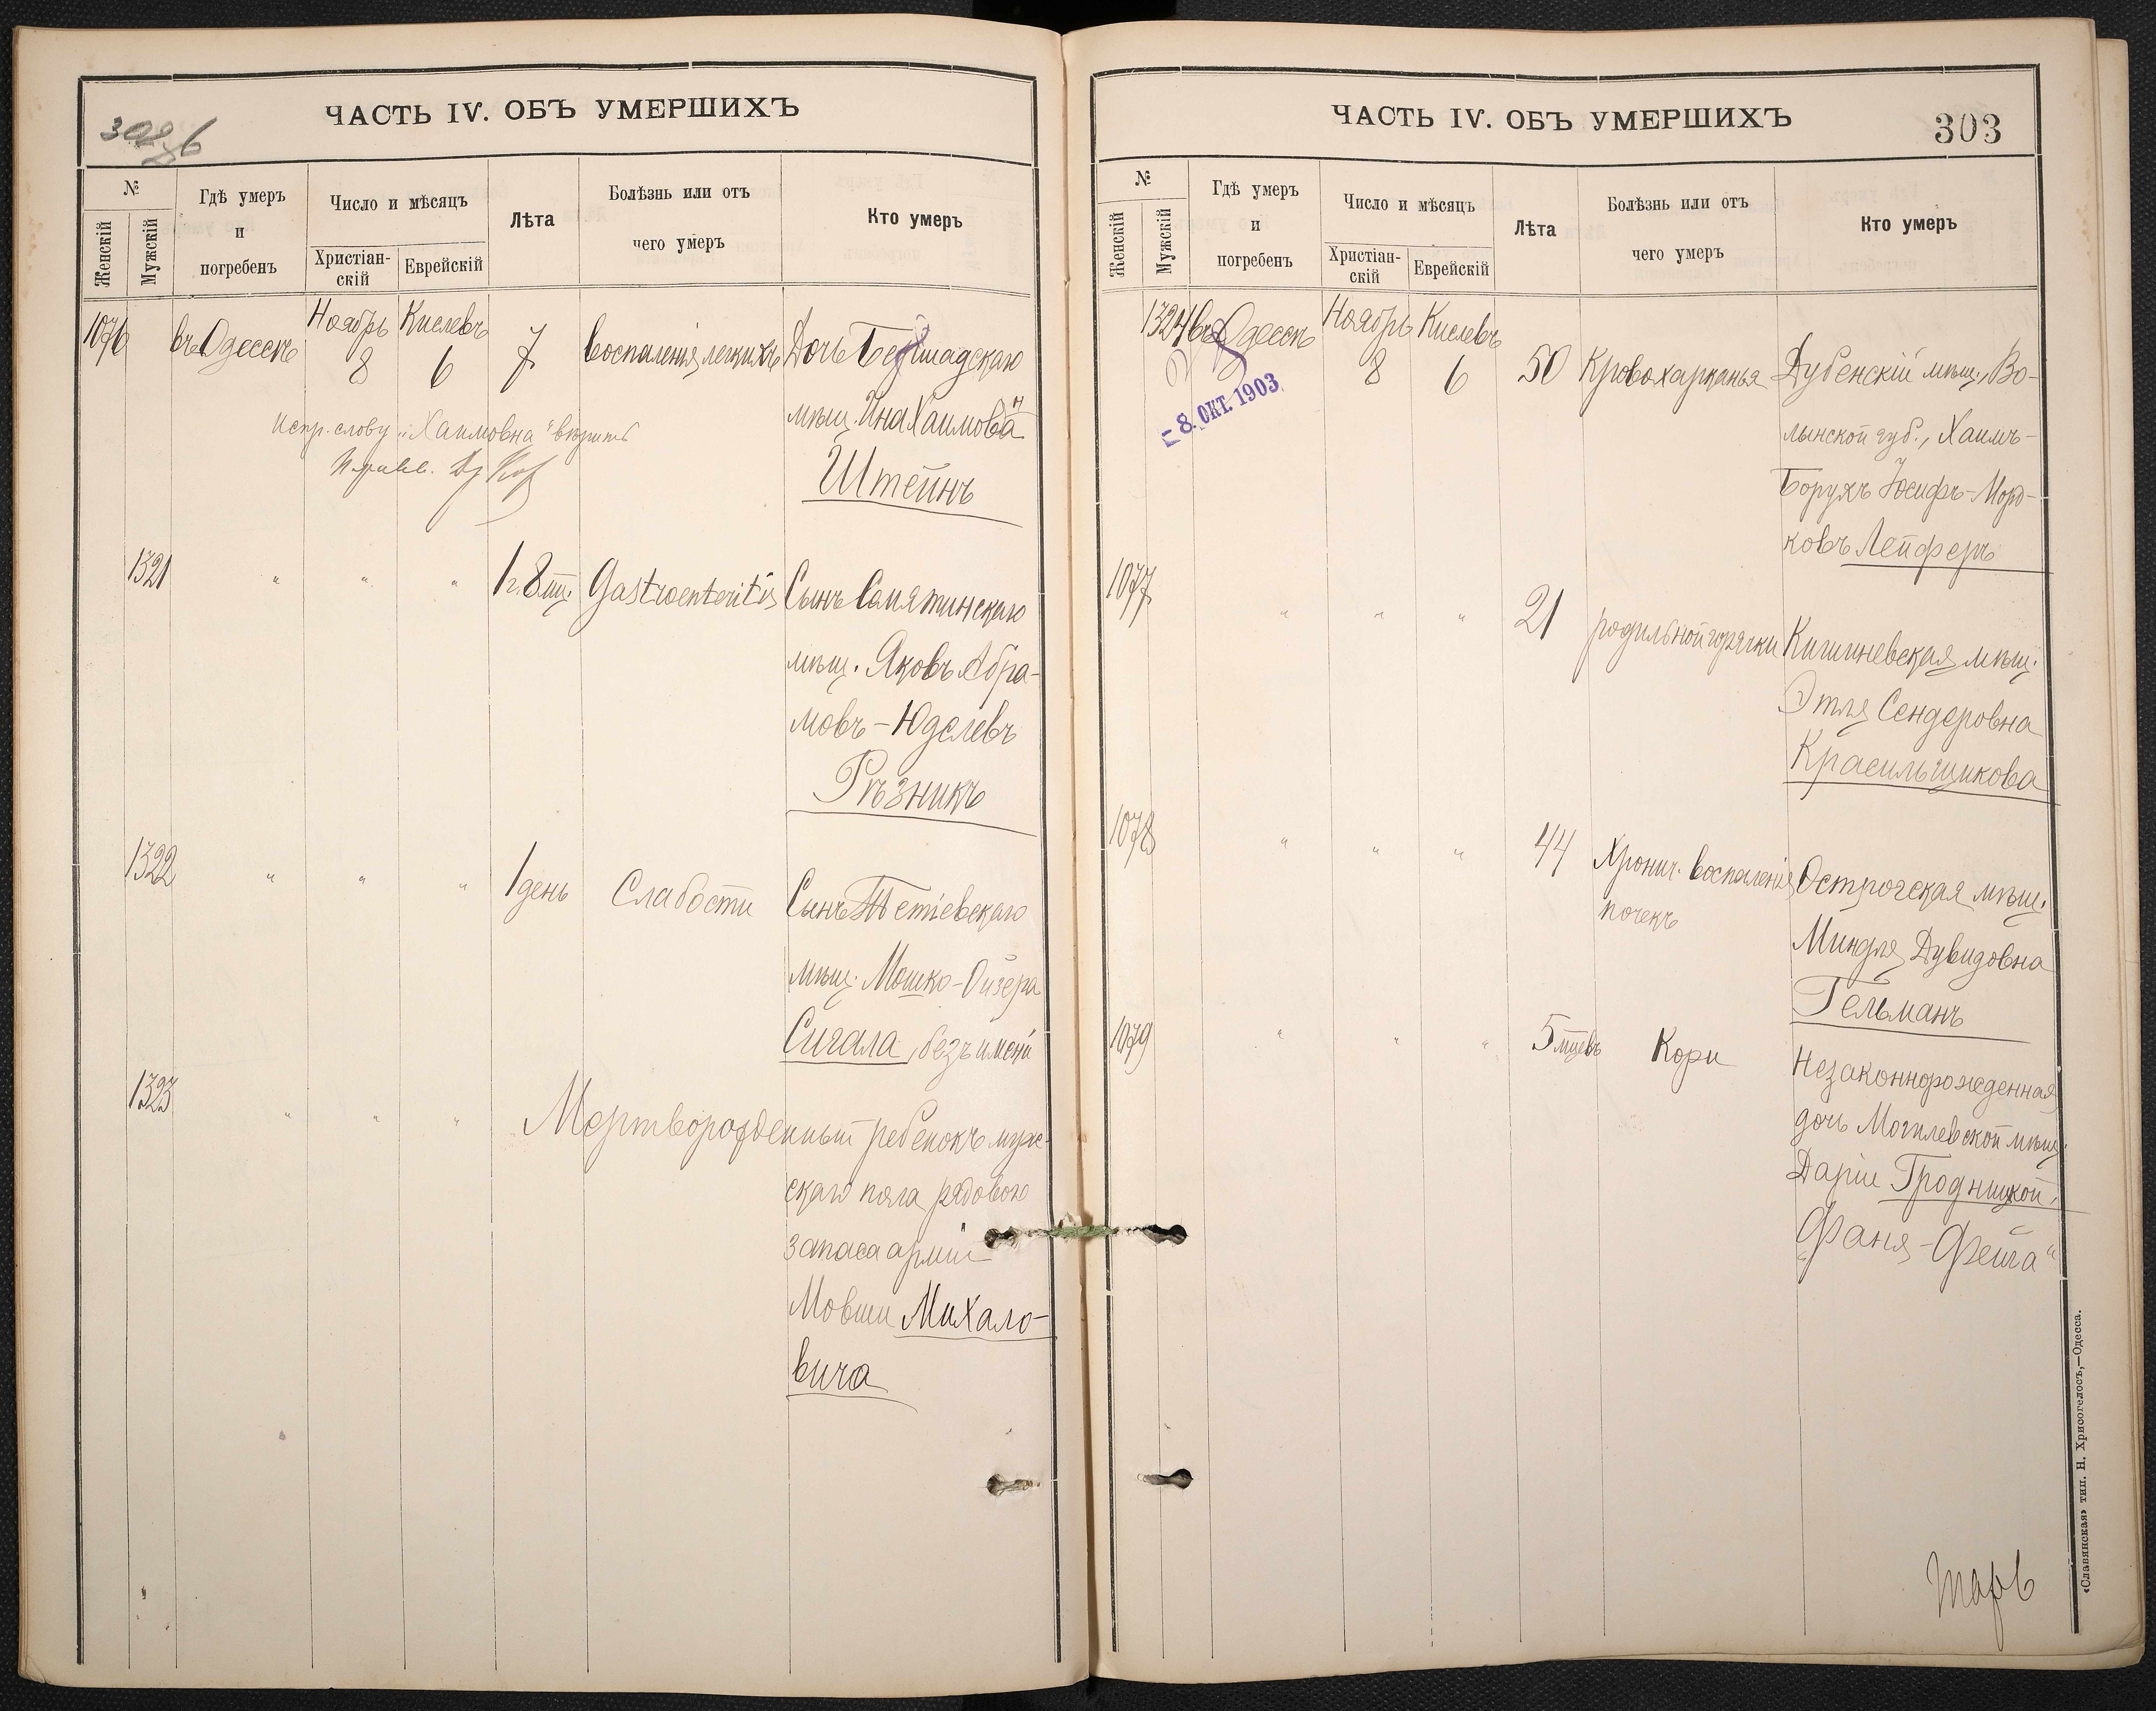 ЧАСТЬ IV. ОБЪ УМЕРШИХЪ
№
Женскій
Мужскій
Гдѣ умеръ
и
погребенъ
Число и мѣсяцъ
Христіан-
скій
Еврейскій
Лѣта
Болѣзнь или отъ
чего умеръ
Кто умеръ
1076 въ Одессѣ Ноябрь 8 Кислевъ 6 7 воспаленія легкихъ Дочь Бершадскаго
мѣщ. Хаимовна
Штейнъ
испр. слову „Хаимовна“ вѣрить
1321 " " " 1 г. 8 мц. Gastroenteritis Сынъ Снятинскаго
мѣщ. Яковъ Абра-
мовъ-Юделевъ
Рѣзникъ
1322 " " " 1 день Слабости Сынъ Тетіевскаго
мѣщ. Мошко-Ойзера
Сигала, безъ имени
1323 " " " Мертворожденный ребенокъ муж-
скаго пола рядового
запаса арміи
Мовши Михало-
вича
ЧАСТЬ IV. ОБЪ УМЕРШИХЪ
303
№
Женскій
Мужскій
Гдѣ умеръ
и
погребенъ
Число и мѣсяцъ
Христіан-
скій
Еврейскій
Лѣта
Болѣзнь или отъ
чего умеръ
Кто умеръ
1324 въ Одессѣ Ноябрь 8 Кислевъ 6 50 Кровохарканья Дубенскій мѣщ., Во-
лынской губ., Хаимъ-
Борухъ Іосифъ-Морд-
ковъ Лейферъ
- 8. ОКТ. 1903
1077 " " " 21 родильной горячки Кишиневская мѣщ.
Этля Сендеровна
Красильщикова
1078 " " " 44 Хронич. воспаленія Острогская мѣщ.
почекъ
Миндля Дувидовна
Гельманъ
1079 " " " 5 мцевъ Кори Незаконнорожденная
дочь Могилевской мѣщ.
Даріи Гродницкой,
„Фаня-Фейга“
«Славянская» тип. Н. Хрисогелосъ,—Одесса.